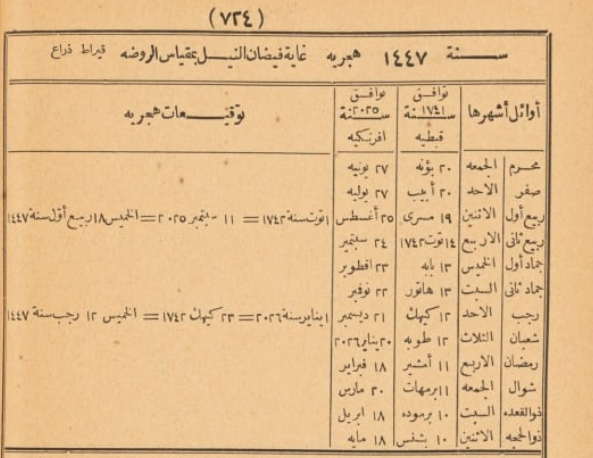 (٧٢٤)
سنة ١٤٤٧ هجريه غاية فيضان النيل بمقياس الروضه قيراط ذراع
أوائل أشهرها توافق سنة ١٧٤١ قبطيه توافق سنة ٢٠٢٥ افرنكيه توقيعات هجريه
محرم الجمعه ٢٠ بؤنه ٢٧ يونيه
صفر الاحد ٢٠ أبيب ٢٧ يوليه
ربيع أول الاثنين ١٩ مسرى ٢٥ أغسطس ١ توت سنة ١٧٤٢ = ١١ سبتمبر ٢٠٢٥ = الخميس ١٨ ربيع أول سنة ١٤٤٧
ربيع ثانى الاربع ١٤ توت ١٧٤٢ ٢٤ سبتمبر
جماد أول الخميس ١٣ بابه ٢٣ اقطوبر
جماد ثانى السبت ١٣ هاتور ٢٢ نوفمبر
رجب الاحد ١٢ كيهك ٢١ ديسمبر ١ يناير سنة ٢٠٢٦ = ٢٣ كيهك ١٧٤٢ = الخميس ١٢ رجب سنة ١٤٤٧
شعبان الثلاث ١٢ طوبه ٢٠ يناير ٢٠٢٦
رمضان الاربع ١١ أمشير ١٨ فبراير
شوال الجمعه ١١ برمهات ٢٠ مارس
ذوالقعده السبت ١٠ برموده ١٨ ابريل
ذوالحجه الاثنين ١٠ بشنس ١٨ مايه